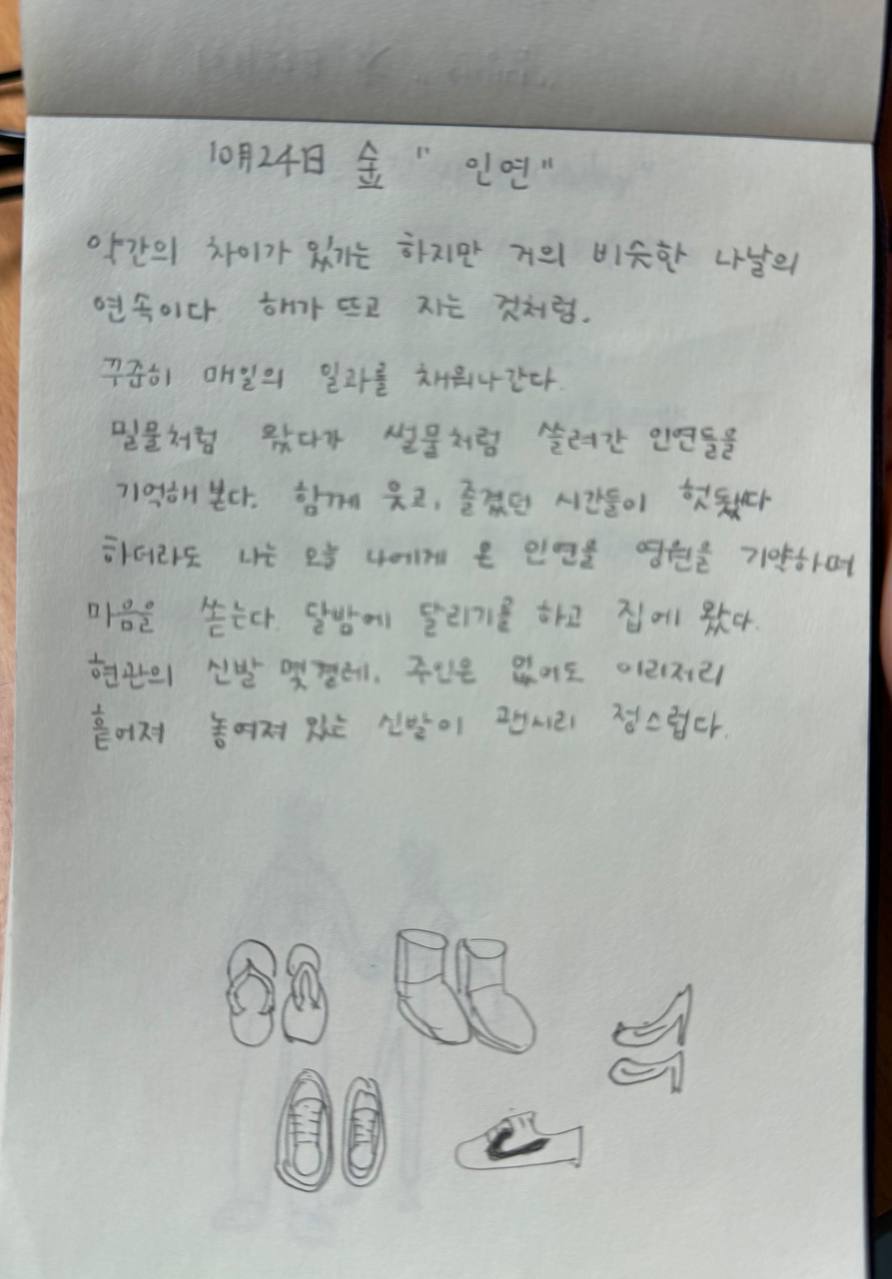 10月24日 金 " 인연"
약간의 차이가 있기는 하지만 거의 비슷한 나날의
연속이다 해가 뜨고 지는 것처럼.
꾸준히 매일의 일과를 채워나간다.
밀물처럼 왔다가 썰물처럼 쓸려간 인연들을
기억해 본다. 함께 웃고, 즐겼던 시간들이 헛됐다
하더라도 나는 오늘 나에게 온 인연을 영원을 기약하며
마음을 쏟는다. 달밤에 달리기를 하고 집에 왔다.
현관의 신발 몇켤레, 주인은 없어도 이리저리
흩어져 놓여져 있는 신발이 괜시리 정스럽다.